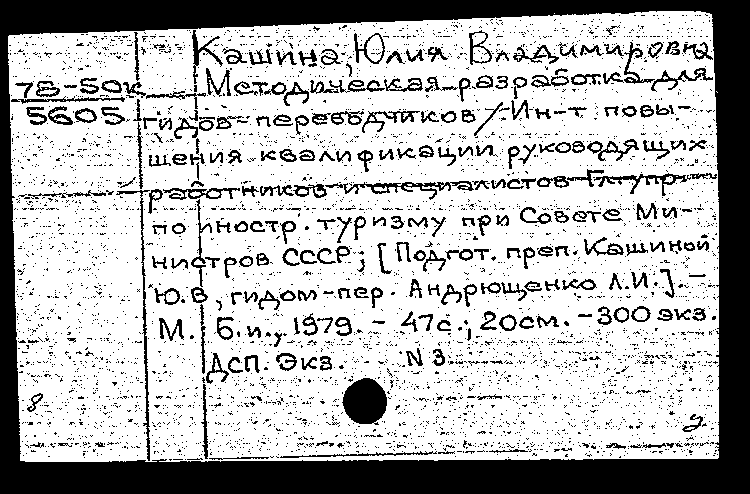 Кашина, Юлия Владимировна
78-50к Методическая разработка для
5605 гидов-переводчиков / Ин-т повы-
шения квалификации руководящих
работников и специалистов Гл. упр.
по иностр. туризму при Совете Ми-
нистров СССР; [Подгот. преп. Кашиной
Ю.В, гидом-пер. Андрющенко Л.И.]. -
М.: Б.и., 1979. - 47с.; 20см. - 300 экз.
ДСП. Экз. N 3
8
2